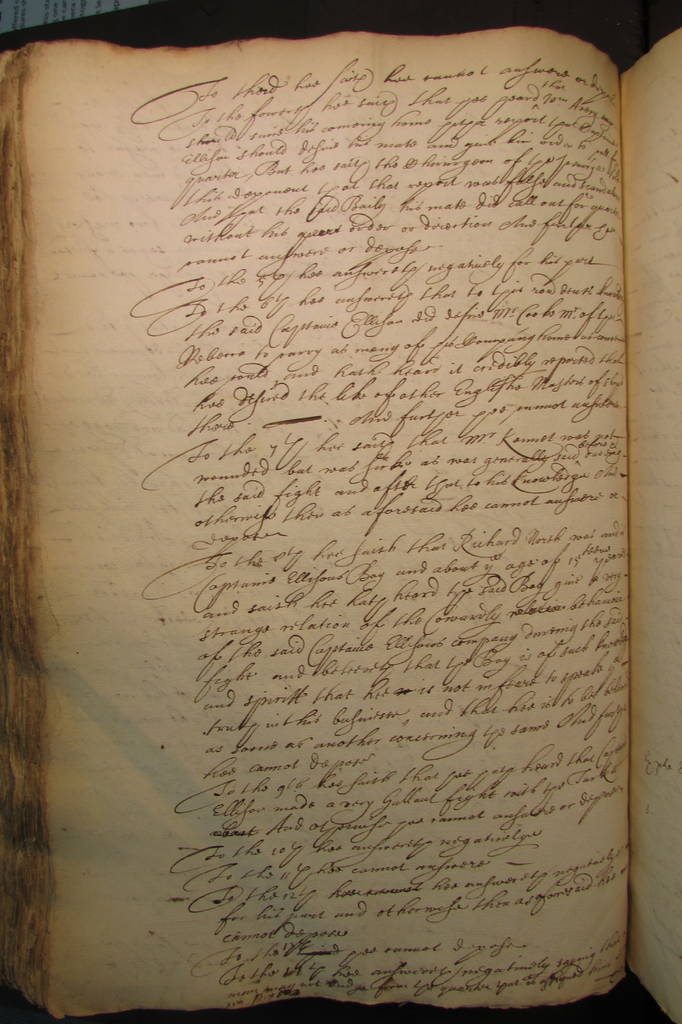 To third hee saith hee cannot answere or depose
To the fowerth hee saith that hee heard that
should since his comeing home hath report that Captaine
Ellison should desire his mate and give him order to call for
quarter, But hee saith the Chirurgeon of the
this deponent that that report was false and
And that the said Baily his mate did call out for quarter
without his order or direction And further hee
cannot answere or depose
To the 5th hee answereth negatively for his part
To the 6th hee answereth that to this rendents
the said Captaine Ellison did desire Mr Cooke Mr of the
Rebecca to carry as many of his Company home as
hee could and hath heard it credibly reported that
hee desired the like of other English Masters of ships
there. And further hee cannot answere
To the 7th hee saith that Mr Kennet was not
wounded but was sicke as was generally said before
the said fight and after that to his knowledge And
otherwise then as aforesaid hee cannot answere or
depose
To the 8th hee saith that Richard North was and is
Captaine Ellisons Boy and about ye age of 15 yeares
and saith hee hath heard the said Boy give a very
strange relation of the Cowardly behaviour
of the said Captaine Ellisons company during the said
fight and beleeveth that the Boy is of such
and spiritt that hee is not in feare to speake ye
truth in this businesse, and that hee is to bee beleeved
as soone as another concerning the same And further
hee cannot depose
To the 9th hee saith that hee hath heard that Captaine
Ellison made a very Gallant fight with the Turke
And otherwise hee cannot answere or depose
To the 10th hee answereth negatively
To the 11th hee cannot answere
To the 12th hee answereth negatively
for his part and otherwise then as aforesaid hee
cannot depose
To the hee cannot depose
To the hee answereth negatively saying that